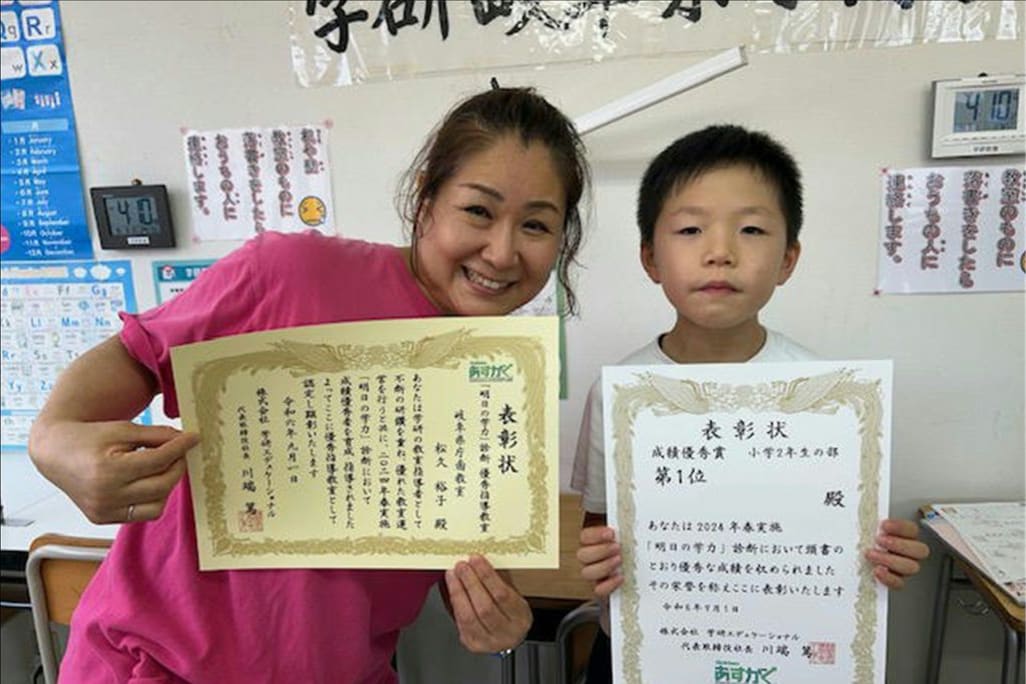 学研
Qq Rr
w Xx
月
1月 January
2月 February
3月 March
4月 April
5月 May
6月 June
7月 July
8月 August
9月 September
10月 October
11月 November
12月 December
Ff Gg
Ll Mm Nn
Rr Ss Tt
Yy Zz
4:10
教室のものに
落書きをしたら
おうちの人に
連絡します。
あすがく
表彰状
「明日の学力」診断 優秀指導教育
岐阜県庁 教室
松久 裕子 殿
あなたは学研の教育指導者として
不断の研鑽を重ね、優れた教育運
営を行うと共に、二〇二四年春実施
「明日の学力」診断において
成績優秀者を育成、指導されました
よってここに優秀指導教育として
認定し顕彰いたします
令和六年九月一日
株式会社 学研エデュケーショナル
代表取締役社長 川端 篤
表彰状
成績優秀賞 小学2年生の部
第1位
殿
あなたは2024年春実施
「明日の学力」診断において頭書の
とおり優秀な成績を収められました
その栄誉を称えここに表彰いたします
令和6年9月1日
株式会社 学研エデュケーショナル
代表取締役社長 川端 篤
あすがく
4:10
教室のものに
落書きをしたら
おうちの人に
連絡します。